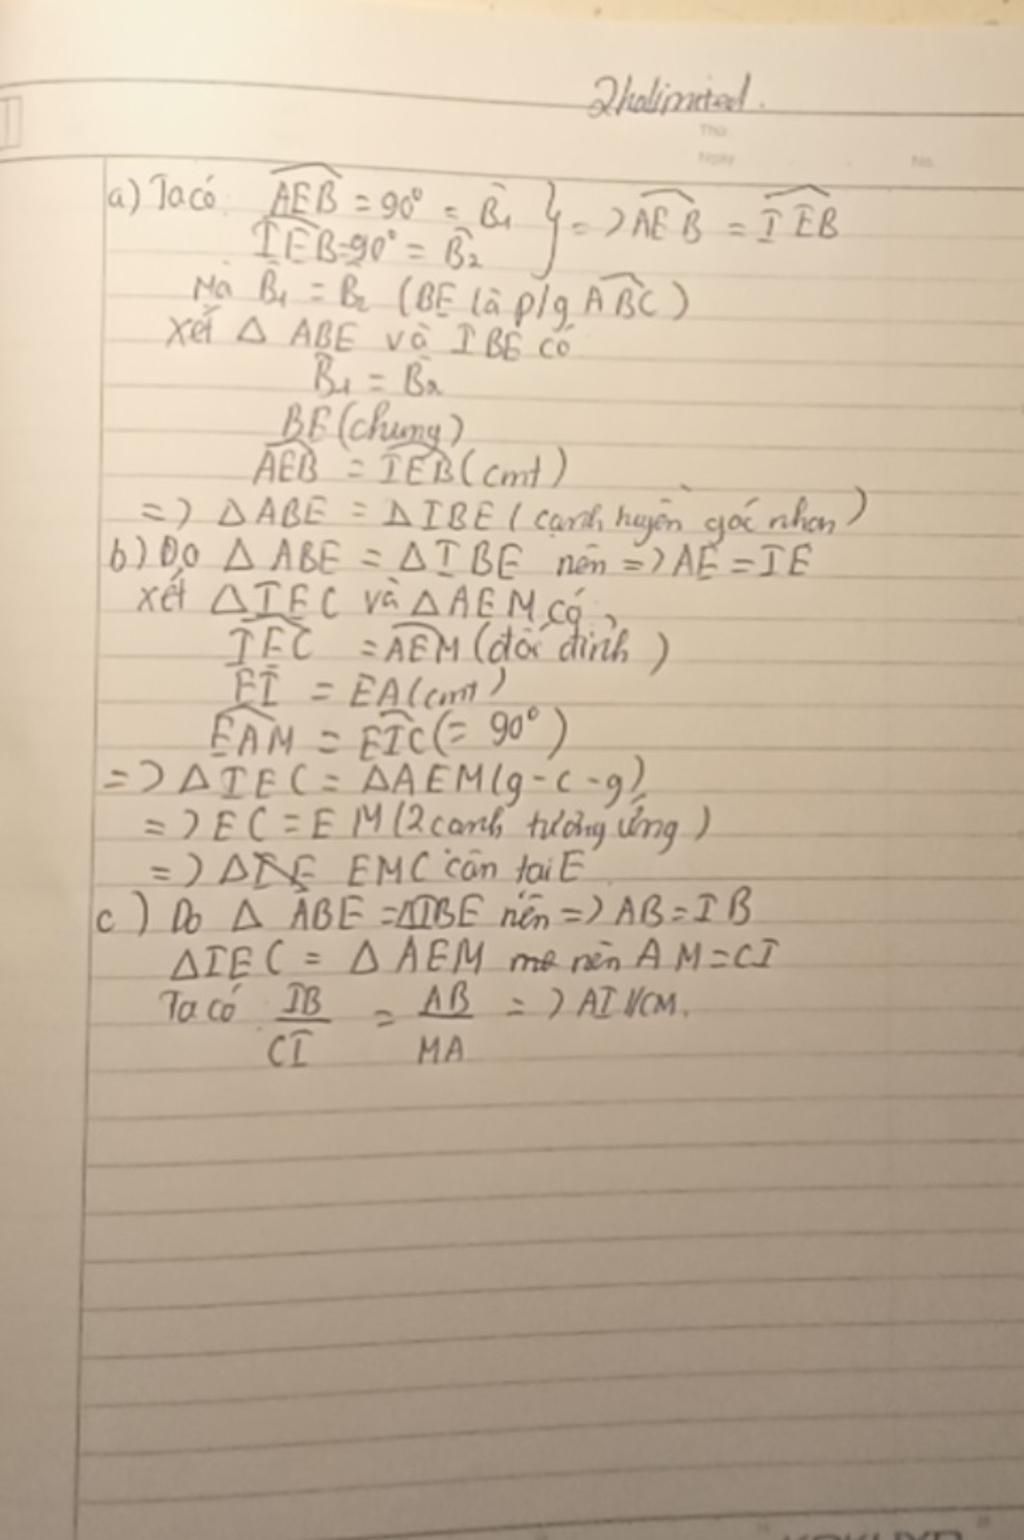 2holimited.
Thứ
Ngày No.
a) Ta có: AEB = 90° = B1 } => AEB = IEB
IEB = 90° = B2
Mà B1 = B2 (BE là p/g ABC)
Xét Δ ABE và IBE có
B1 = B2
BE (chung)
AEB = IEB (cmt)
=> Δ ABE = Δ IBE (cạnh huyền góc nhọn)
b) Do Δ ABE = Δ IBE nên => AE = IE
Xét Δ IEC và Δ AEM có,
IEC = AEM (đối đỉnh)
EI = EA (cmt)
EAM = EIC (= 90°)
=> Δ IEC = Δ AEM (g-c-g)
=> EC = EM (2 cạnh tương ứng)
=> Δ EMC cân tại E
c) Do Δ ABE = Δ IBE nên => AB = IB
Δ IEC = Δ AEM nên AM = CI
Ta có IB/CI = AB/MA => AI // CM.